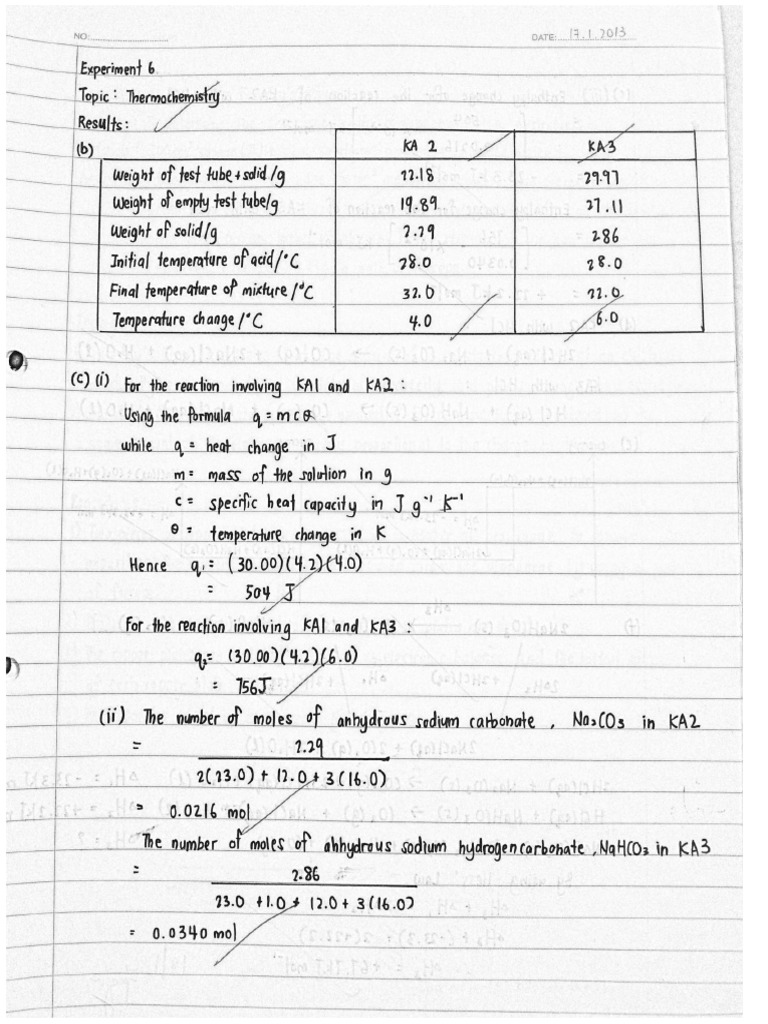 NO:
DATE: 17.1.2013
Experiment 6
Topic: Thermochemistry
Results:
(b)
KA 2 KA3
Weight of test tube + solid /g 22.18 29.97
Weight of empty test tube/g 19.89 27.11
Weight of solid/g 2.29 2.86
Initial temperature of acid/°C 28.0 28.0
Final temperature of mixture /°C 32.0 22.0
Temperature change/°C 4.0 6.0
(c) (i) For the reaction involving KA1 and KA2:
Using the formula q = mcθ
while q = heat change in J
m = mass of the solution in g
c = specific heat capacity in J g⁻¹ K⁻¹
θ = temperature change in K
Hence q₁ = (30.00)(4.2)(4.0)
= 504 J
For the reaction involving KA1 and KA3:
q₂ = (30.00)(4.2)(6.0)
= 756J
(ii) The number of moles of anhydrous sodium carbonate, Na₂CO₃ in KA2
= 2.29
2(23.0) + 12.0 + 3(16.0)
= 0.0216 mol
The number of moles of anhydrous sodium hydrogencarbonate, NaHCO₃ in KA3
= 2.86
23.0 + 1.0 + 12.0 + 3(16.0)
= 0.0340 mol